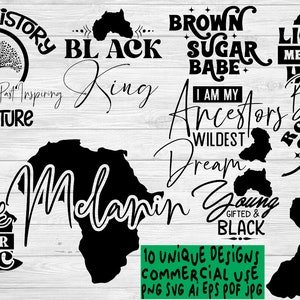 HISTORY
Past Inspiring
TURE
BLACK
King
BROWN
SUGAR
BABE
I AM MY
Ancestors
WILDEST
Dream
Melanin
Young
GIFTED &
BLACK
10 UNIQUE DESIGNS
COMMERCIAL USE
PNG SVG Ai EPS PDF JPG